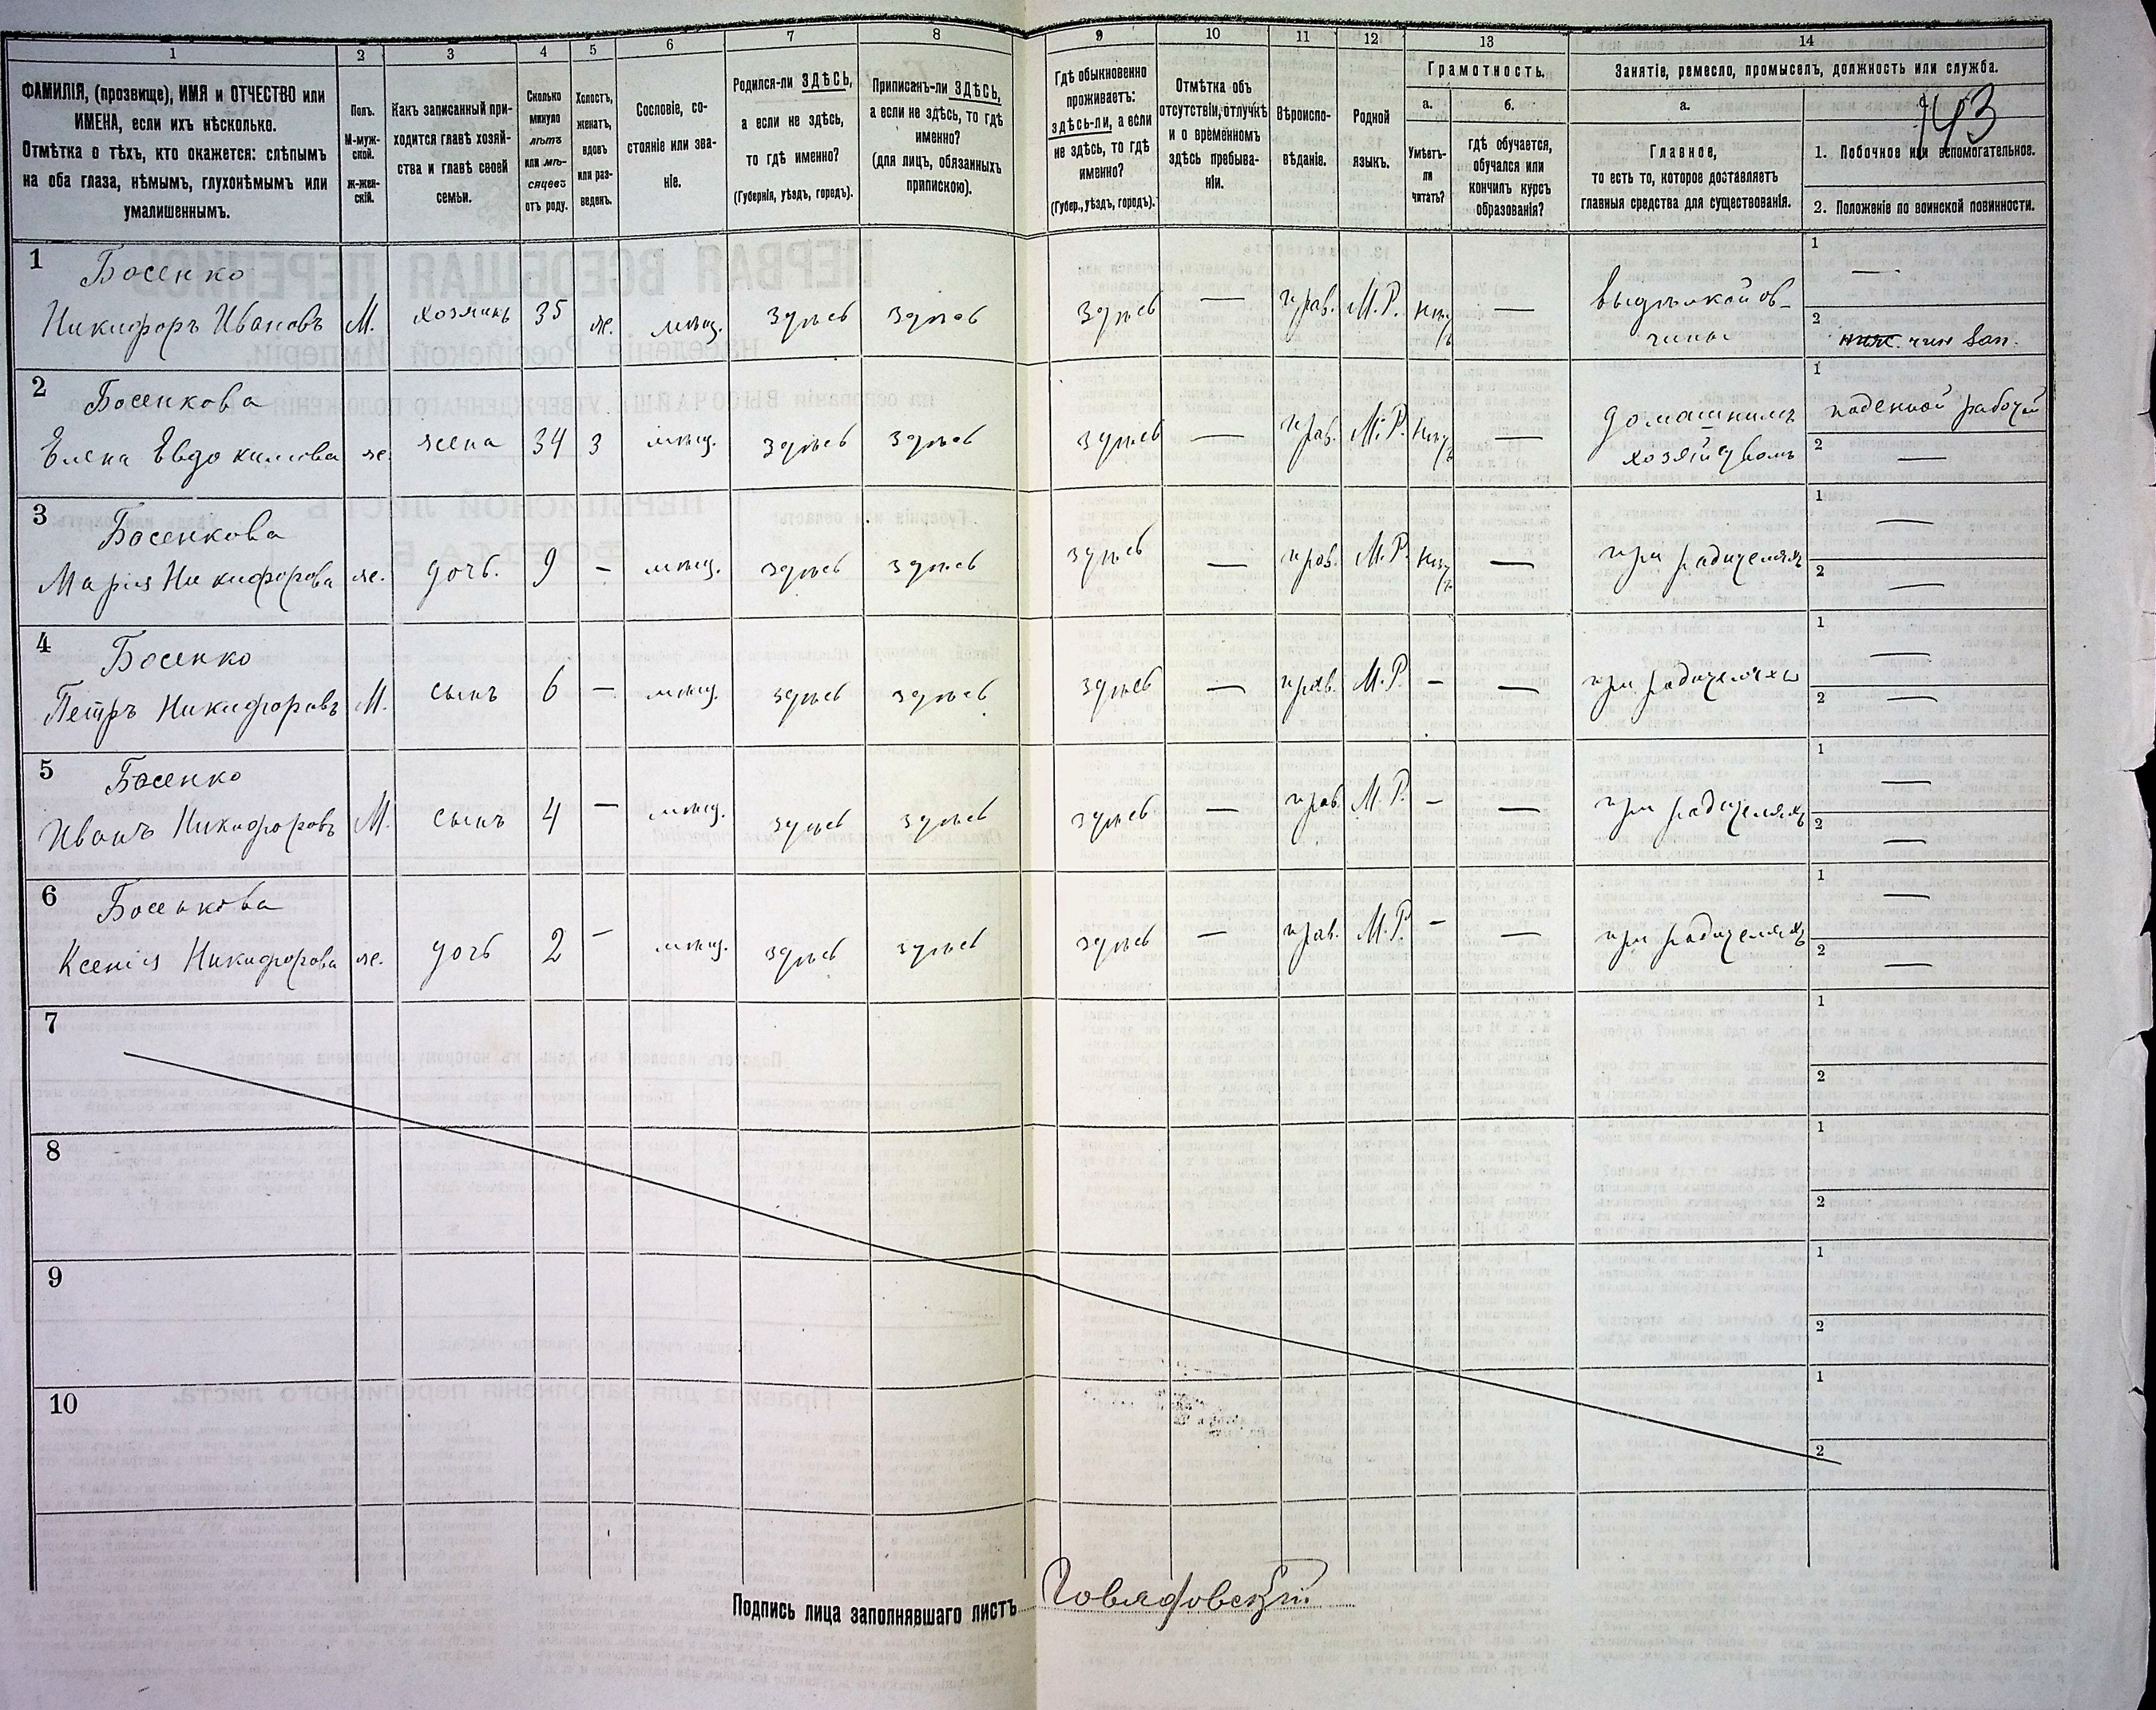 1 2 3 4 5 6 7 8 9 10 11 12 13 14
143
ФАМИЛІЯ, (прозвище), ИМЯ и ОТЧЕСТВО или
ИМЕНА, если ихъ нѣсколько.
Отмѣтка о тѣхъ, кто окажется: слѣпымъ
на оба глаза, нѣмымъ, глухонѣмымъ или
умалишеннымъ.
Полъ.
М-муж-
ской.
Ж-жен-
скій.
Какъ записанный при-
ходится главѣ хозяй-
ства и главѣ своей
семьи.
Сколько
минуло
лѣтъ
или мѣ-
сяцевъ
отъ роду.
Холостъ,
женатъ,
вдовъ
или раз-
веденъ.
Сословіе, со-
стояніе или зва-
ніе.
Родился-ли ЗДѢСЬ,
а если не здѣсь,
то гдѣ именно?
(Губернія, уѣздъ, городъ).
Приписанъ-ли ЗДѢСЬ,
а если не здѣсь, то гдѣ
именно?
(для лицъ, обязанныхъ
припискою).
Гдѣ обыкновенно
проживаетъ:
здѣсь-ли, а если
не здѣсь, то гдѣ
именно?
(Губер., уѣздъ, городъ).
Отмѣтка объ
отсутствіи, отлучкѣ
и о временномъ
здѣсь пребыва-
ніи.
Вѣроиспо-
вѣданіе.
Родной
языкъ.
Грамотность.
а.
Умѣетъ-
ли
читать?
б.
гдѣ обучается,
обучался или
кончилъ курсъ
образованія?
Занятіе, ремесло, промыселъ, должность или служба.
а.
Главное,
то есть то, которое доставляетъ
главныя средства для существованія.
1. Побочное или вспомогательное.
2. Положеніе по воинской повинности.
1 Босенко
Никифоръ Ивановъ М. хозяинъ 35 ж. мѣщ. здѣсь здѣсь здѣсь — прав. М.Р. нѣтъ —
1 —
2
2 Босенкова
Елена Евдокимова ж. жена 34 з мѣщ. здѣсь здѣсь здѣсь — прав. М.Р. нѣтъ — домашнимъ
хозяйствомъ
1 поденной работой
2 —
3 Босенкова
Марія Никифорова ж. дочь. 9 – мѣщ. здѣсь здѣсь здѣсь — прав. М.Р. нѣтъ — при родителяхъ
1 —
2 —
4 Босенко
Петръ Никифоровъ М. сынъ 6 — мѣщ. здѣсь здѣсь здѣсь — прав. М.Р. – — при родителяхъ
1 —
2 —
5 Босенко
Иванъ Никифоровъ М. сынъ 4 — мѣщ. здѣсь здѣсь здѣсь — прав. М.Р. – — при родителяхъ
1 —
2 —
6 Босенкова
Ксенія Никифорова ж. дочь 2 — мѣщ. здѣсь здѣсь здѣсь — прав. М.Р. – — при родителяхъ
1 —
2 —
7
1
2
8
1
2
9
1
2
10
1
2
Подпись лица заполнявшаго листъ